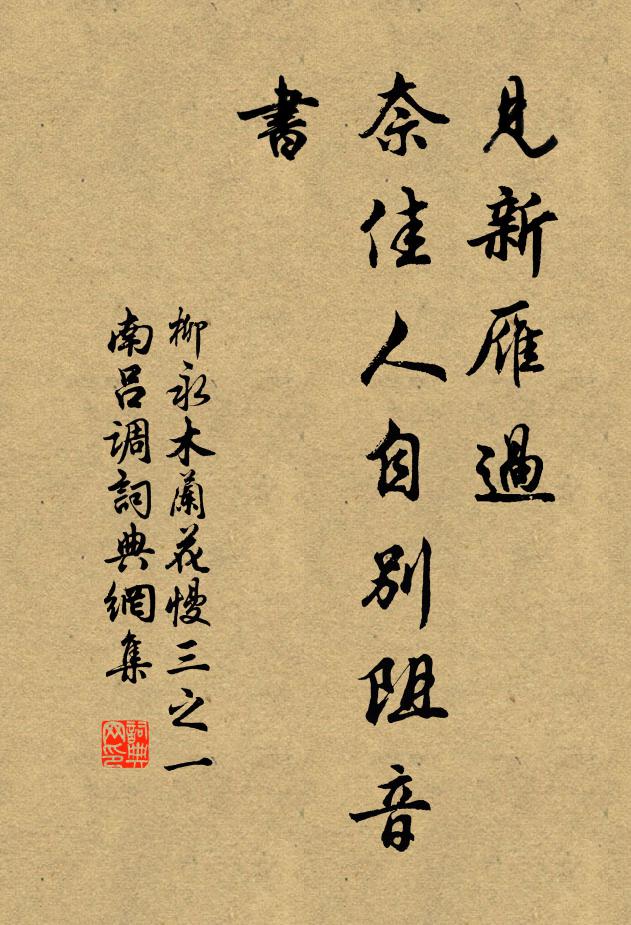 見新雁過
奈佳人自別阻音
書
柳永木蘭花慢三之一
南呂调詞典網集
詞典网印